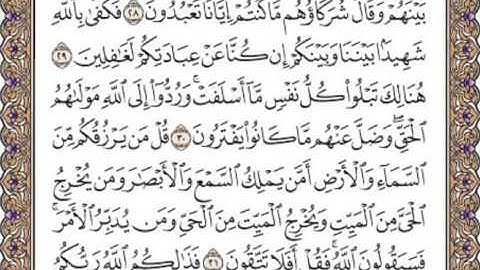 بَيْنَهُمْ وَقَالَ شُرَكَآؤُهُم مَّا كُنتُمْ إِيَّانَا تَعْبُدُونَ ٢٨ فَكَفَىٰ بِٱللَّهِ
شَهِيدًۢا بَيْنَنَا وَبَيْنَكُمْ إِن كُنَّا عَنْ عِبَادَتِكُمْ لَغَٰفِلِينَ ٢٩
هُنَالِكَ تَبْلُوا۟ كُلُّ نَفْسٍ مَّآ أَسْلَفَتْ ۚ وَرُدُّوٓا۟ إِلَى ٱللَّهِ مَوْلَىٰهُمُ
ٱلْحَقِّ ۖ وَضَلَّ عَنْهُم مَّا كَانُوا۟ يَفْتَرُونَ ٣٠ قُلْ مَن يَرْزُقُكُم مِّنَ
ٱلسَّمَآءِ وَٱلْأَرْضِ أَمَّن يَمْلِكُ ٱلسَّمْعَ وَٱلْأَبْصَٰرَ وَمَن يُخْرِجُ
ٱلْحَىَّ مِنَ ٱلْمَيِّتِ وَيُخْرِجُ ٱلْمَيِّتَ مِنَ ٱلْحَىِّ وَمَن يُدَبِّرُ ٱلْأَمْرَ ۚ
فَسَيَقُولُونَ ٱللَّهُ ۚ فَقُلْ أَفَلَا تَتَّقُونَ ٣١ فَذَٰلِكُمُ ٱللَّهُ رَبُّكُمُ